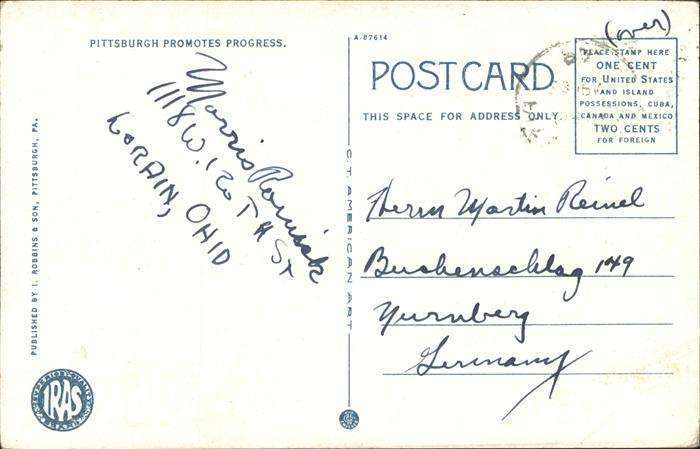 (over)
PITTSBURGH PROMOTES PROGRESS.
A-87614
POST CARD
THIS SPACE FOR ADDRESS ONLY.
PLACE STAMP HERE
ONE CENT
FOR UNITED STATES
AND ISLAND
POSSESSIONS, CUBA,
CANADA AND MEXICO
TWO CENTS
FOR FOREIGN
Morris
1118 W. 120 TH ST
LORAIN, OHIO
Herrn Martin Reinel
Buchenschlag 149
Nurnberg
Germany
PUBLISHED BY I. ROBBINS & SON, PITTSBURGH, PA.
C.T. AMERICAN ART
SUPERIOR QUALITY
IRAS
BRAND